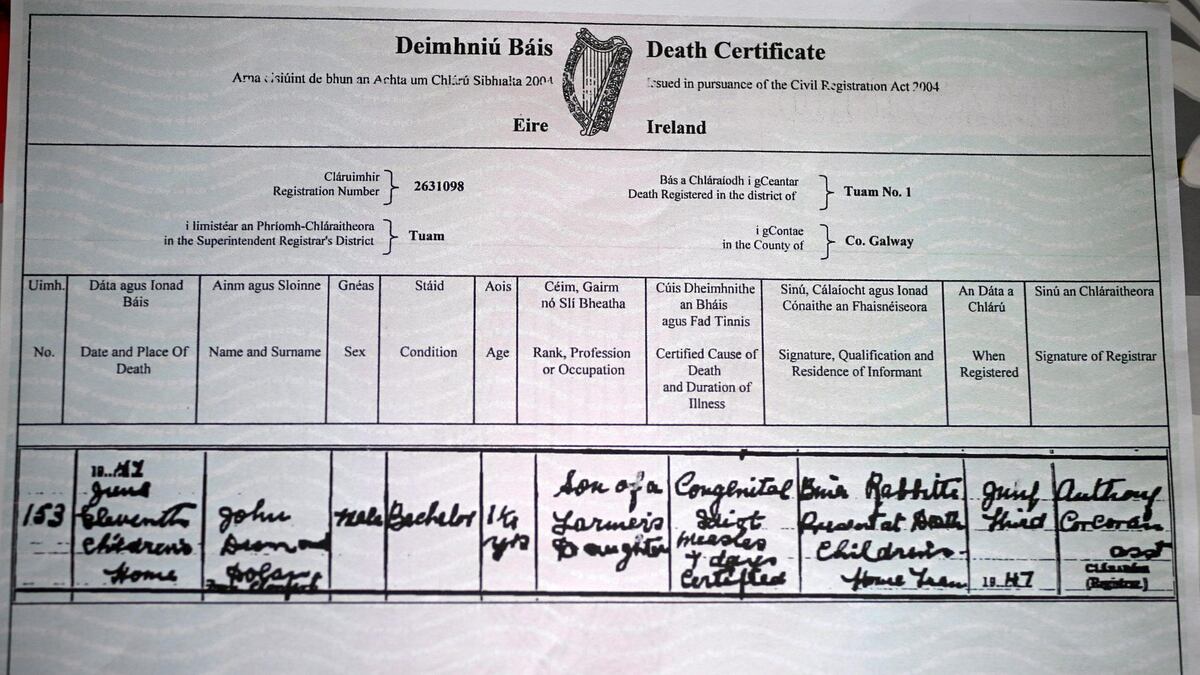 Deimhniú Báis
Death Certificate
Arna eisiúint de bhun an Achta um Chlárú Sibhialta 2004
Issued in pursuance of the Civil Registration Act 2004
Éire
Ireland
Cláruimhir
Registration Number
2631098
Bás a Chláraíodh i gCeantar
Death Registered in the district of
Tuam No. 1
i limistéar an Phríomh-Chláraitheora
in the Superintendent Registrar's District
Tuam
i gContae
in the County of
Co. Galway
Uimh.
No.
Dáta agus Ionad
Báis
Date and Place Of
Death
Ainm agus Sloinne
Name and Surname
Gnéas
Sex
Stáid
Condition
Aois
Age
Céim, Gairm
nó Slí Bheatha
Rank, Profession
or Occupation
Cúis Dheimhnithe
an Bháis
agus Fad Tinnis
Certified Cause of
Death
and Duration of
Illness
Sinú, Cálaíocht agus Ionad
Cónaithe an Fhaisnéiseora
Signature, Qualification and
Residence of Informant
An Dáta a
Chlárú
When
Registered
Sinú an Chláraitheora
Signature of Registrar
153
19..47
June
Eleventh
Children's
Home
John
Desmond
Dolan
Male
Bachelor
yrs
Son of a
Farmer's
Daughter
Congenital
Idiot
Measles
7 days
Certified
Rabbitte
Present at Death
Children's
Home
June
third
19..47
Anthony
Corcoran
asst
(Registrar)